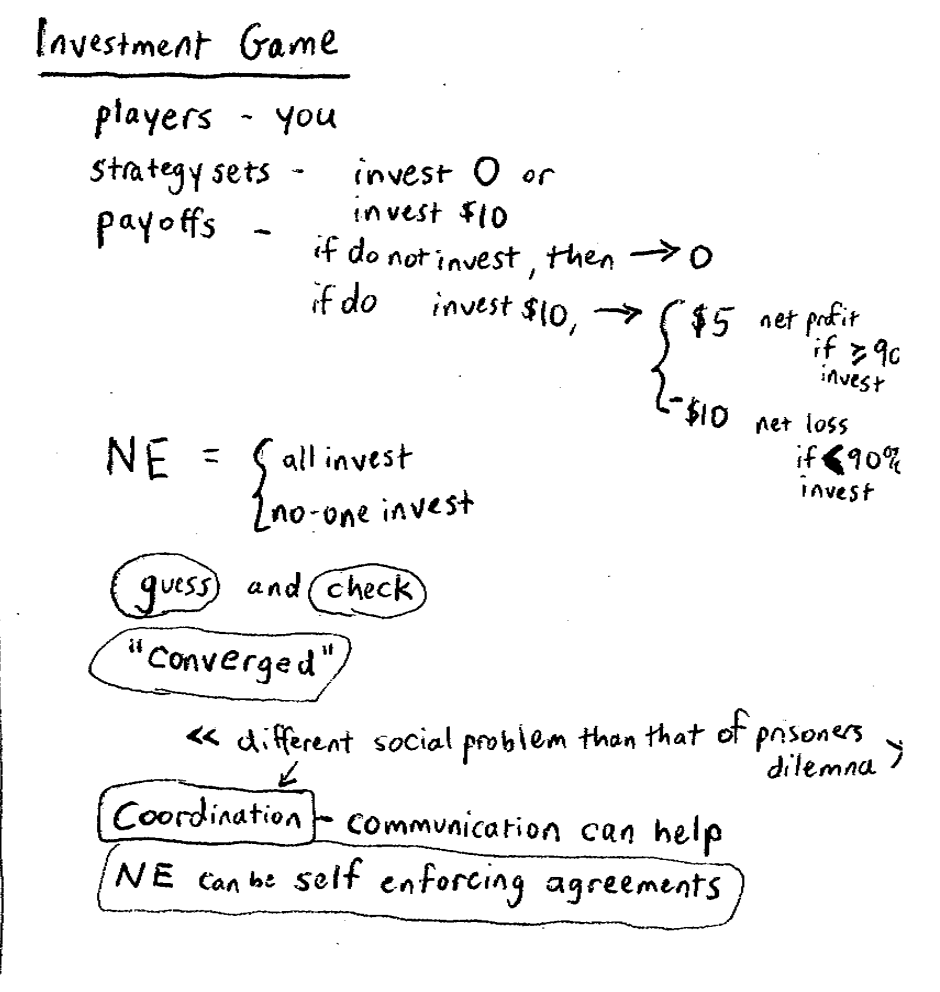 Investment Game
players - you
strategy sets - invest 0 or
invest $10
payoffs -
if do not invest, then → 0
if do invest $10, → { $5 net profit
if ≥ 90
invest
-$10 net loss
if < 90%
invest
NE = { all invest
no-one invest
guess and check
"converged"
<< different social problem than that of prisoners
dilemna >
Coordination - communication can help
NE can be self enforcing agreements